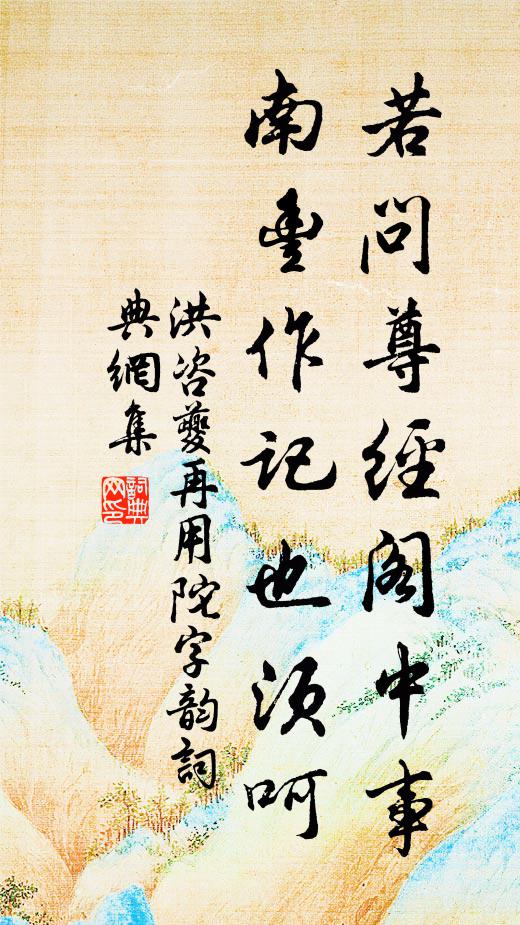 若問尊經閣中事
南豐作記也須呵
洪咨夔再用陀字韵詞
典網集
詞典網印